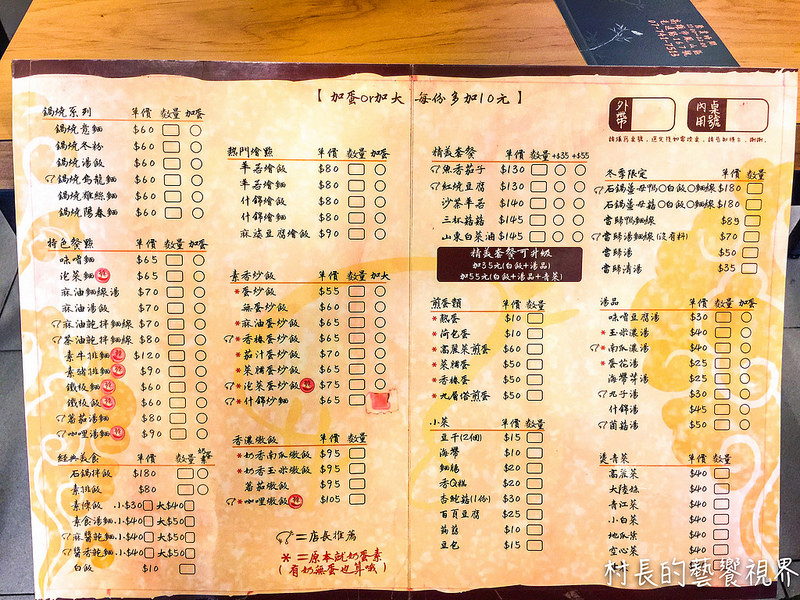 【 加蛋or加大 每份多加10元 】
鍋燒系列 單價 數量 加蛋
鍋燒意麵 $60
鍋燒冬粉 $60
鍋燒湯飯 $60
鍋燒烏龍麵 $60
鍋燒雞絲麵 $60
鍋燒陽春麵 $60
特色餐點 單價 數量 加蛋
味噌麵 $65
泡菜麵 $65
麻油麵線湯 $70
麻油湯飯 $70
麻油乾拌麵線 $70
茶油乾拌麵線 $70
素牛排麵 $120
素豬排麵 $90
鐵板麵 $60
鐵板飯 $60
蕃茄湯麵 $80
咖哩湯麵 $90
經典美食 單價 數量
石鍋拌飯 $180
素排飯 $80
素條飯 小$30 大$40
素食湯麵 小$40 大$50
麻醬乾麵 小$40 大$50
醬香乾麵 小$40 大$50
白飯 $10
熱門燴點 單價 數量 加蛋
羊若燴飯 $80
羊若燴麵 $80
什錦燴飯 $80
什錦燴麵 $80
麻婆豆腐燴飯 $90
素香炒飯 單價 數量 加大
*蛋炒飯 $55
無蛋炒飯 $60
*麻油蛋炒飯 $65
*香椿蛋炒飯 $65
*茄汁蛋炒飯 $70
*菜脯蛋炒飯 $65
*泡菜蛋炒飯 $75
*什錦炒麵 $65
香濃燉飯 單價 數量
*奶香南瓜燉飯 $95
*奶香玉米燉飯 $95
蕃茄燉飯 $95
*咖哩燉飯 $105
=店長推薦
* =原本就奶蛋素
(有奶無蛋也算哦)
精美套餐 單價 數量 +$35 +$55
魚香茄子 $130
紅燒豆腐 $130
沙茶羊若 $140
三杯菇菇 $145
山東白菜滷 $145
精美套餐可升級
加35元(白飯+湯品)
加55元(白飯+湯品+青菜)
煎蛋類 單價 數量
*熟蛋 $10
*荷包蛋 $10
*高麗菜煎蛋 $60
*菜脯蛋 $50
*香椿蛋 $50
*九層塔煎蛋 $50
小菜 單價 數量
豆干(2個) $15
海帶 $10
麵腸 $20
香Q糕 $20
杏鮑菇(1份) $30
百頁豆腐 $25
蒟蒻 $10
豆包 $15
外帶
內用 桌號
冬季限定 單價 數量
石鍋薑母鴨○白飯○麵線 $180
石鍋薑母菇○白飯○麵線 $180
當歸鴨麵線 $85
當歸湯麵線(沒有料) $70
當歸湯 $50
當歸清湯 $35
湯品 單價 數量 加蛋
味噌豆腐湯 $30
*玉米濃湯 $40
*南瓜濃湯 $40
*蛋花湯 $25
海帶芽湯 $25
丸子湯 $30
什錦湯 $45
菌菇湯 $50
燙青菜 單價 數量
高麗菜 $40
大陸妹 $40
青江菜 $40
小白菜 $40
地瓜葉 $40
空心菜 $40
村長的藝饗視界